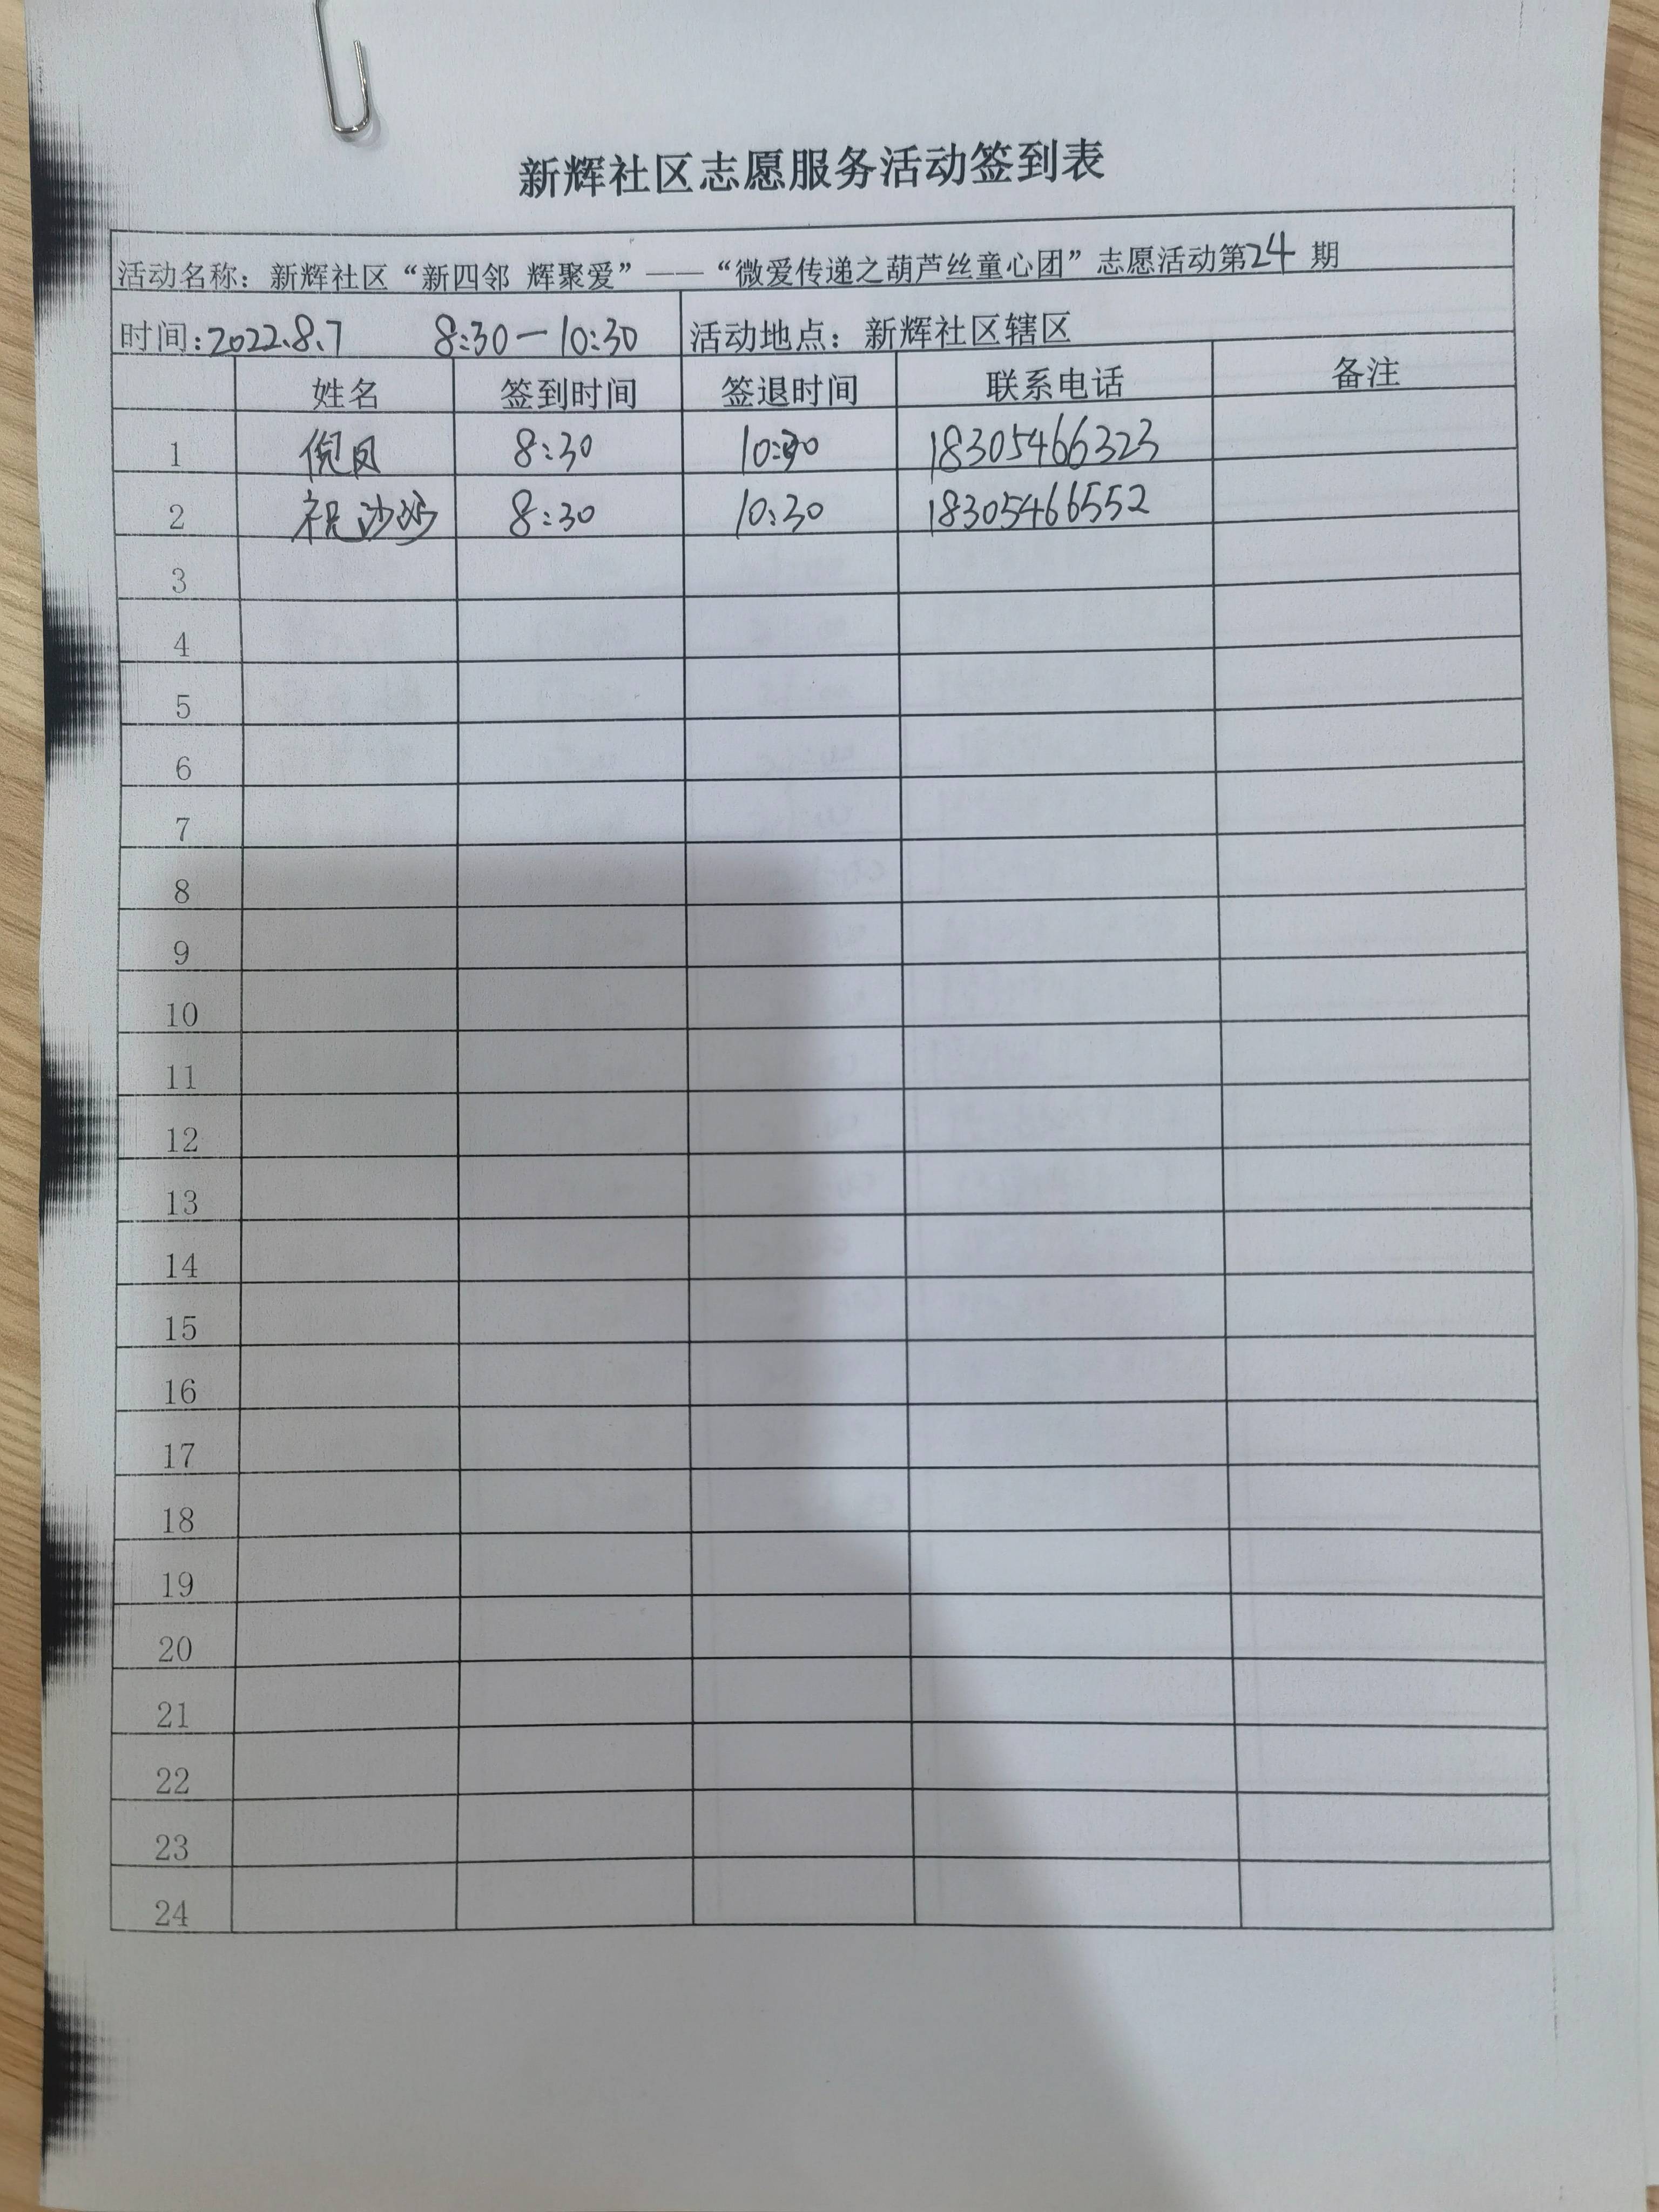 新辉社区志愿服务活动签到表
活动名称：新辉社区“新四邻 辉聚爱”——“微爱传递之葫芦丝童心团”志愿活动第24期
时间：2022.8.7 8:30—10:30 活动地点：新辉社区辖区
姓名 签到时间 签退时间 联系电话 备注
1 倪凤 8:30 10:30 18305466323
2 祝沙沙 8:30 10:30 18305466552
3
4
5
6
7
8
9
10
11
12
13
14
15
16
17
18
19
20
21
22
23
24